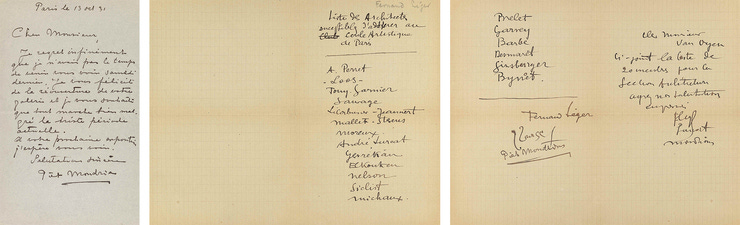 Paris le 13 oct 31
Cher Monsieur
Je regret infiniment
que je n'avais pas le temps
de venir vous voir samedi
dernier. Je vous félicite
de la réouverture de votre
galerie et je vous souhaite
que tout marche bien mal-
gré la triste période
actuelle.
A votre prochaine exposition
j'espère vous voir.
Salutations sincères
Piet Mondrian
Fernand Léger
Liste de Architects
susceptibles d'adhérer au
Cercle Artistique
de Paris
A. Perret
- Loos -
Tony Garnier
Sauvage
Lecorbusier - Jeanneret
Mallet-Stevens
moreux
André Lurcat
Guevrekian
Elkouken
nelson
Siclis
michaux
Brelet
Garvey
Barbé
Bonmaret
Ginsberger
Fernand Léger
Piet Mondrian
Cher monsieur
Van Oyen
Ci-joint la liste de
20 membres pour la
Section Architecture
agréez nos salutations
mondrian